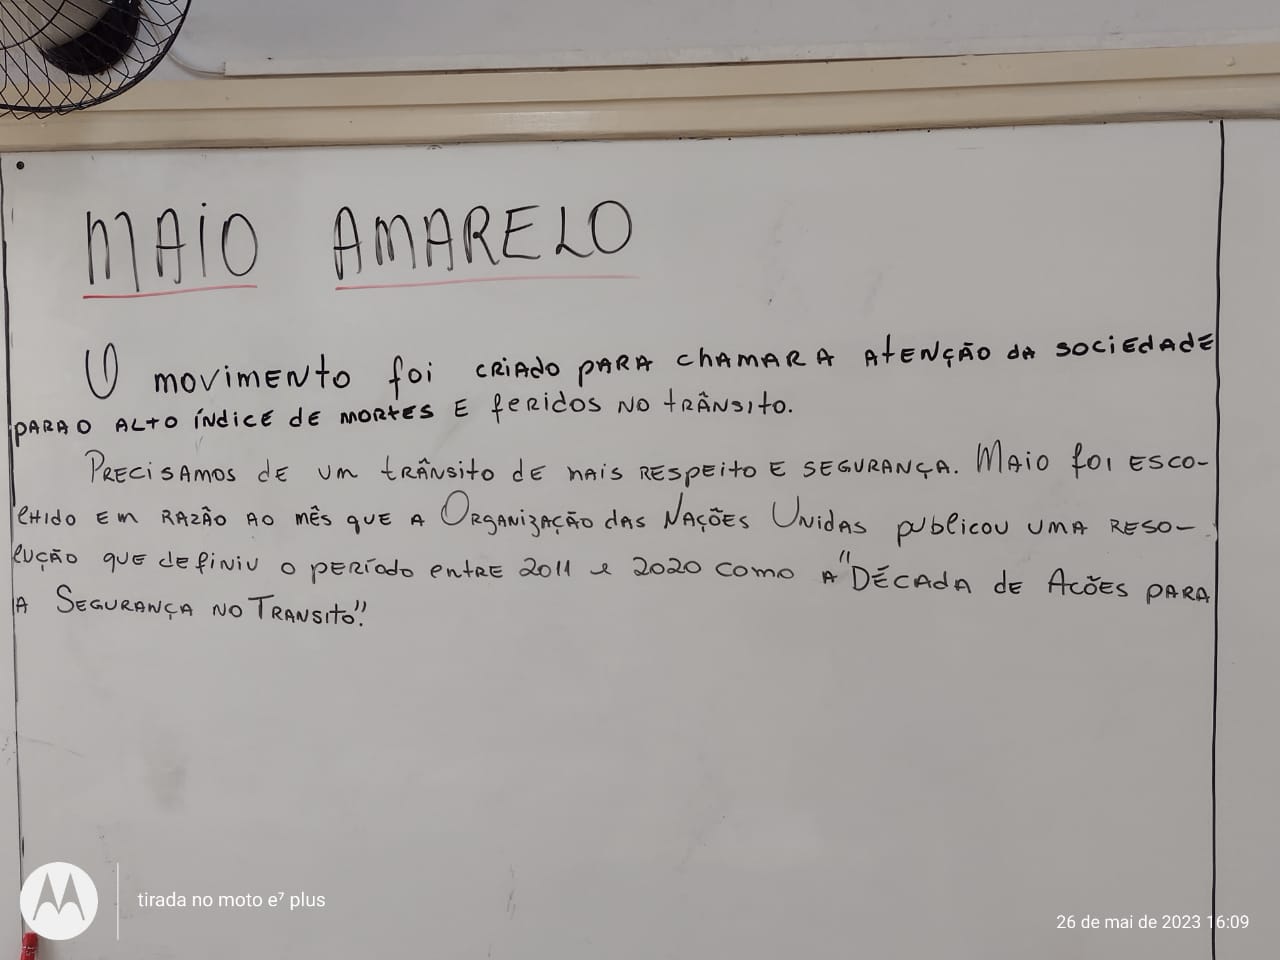 MAIO AMARELO
O movimento foi criado para chamar a atenção da sociedade
para o alto índice de mortes e feridos no trânsito.
Precisamos de um trânsito de mais respeito e segurança. Maio foi esco-
lhido em razão ao mês que a Organização das Nações Unidas publicou uma reso-
lução que definiu o período entre 2011 e 2020 como a "Década de Acões para
a Segurança no Transito."
tirada no moto e⁷ plus
26 de mai de 2023 16:09